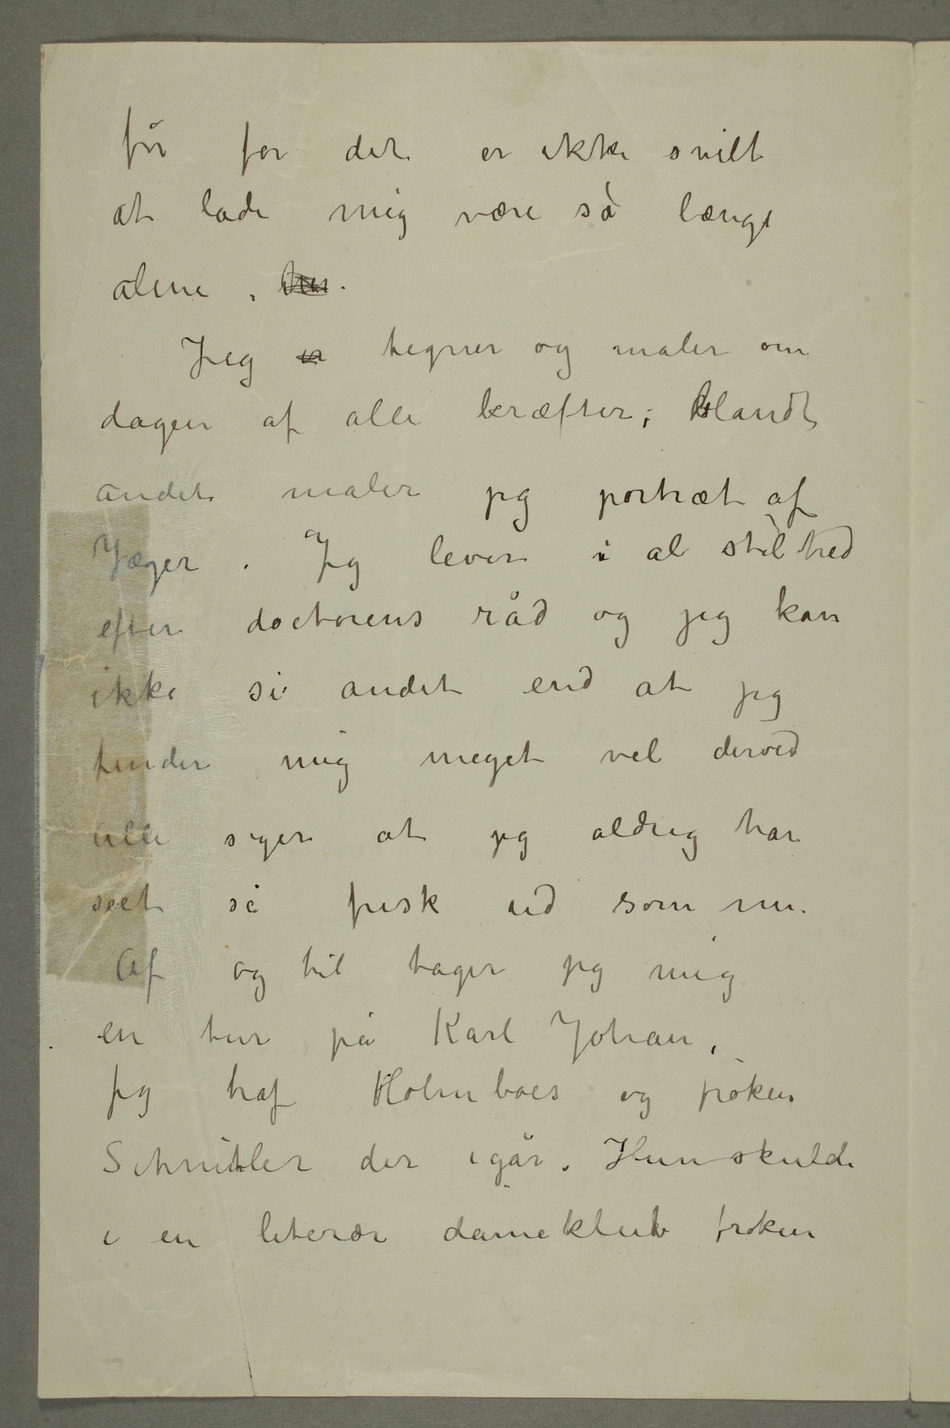 før for det er ikke snilt
at lade mig være så længe
alene.
Jeg tegner og maler om
dagen af alle kræfter; blandt
andet maler jeg portræt af
Jæger. Jeg lever i al stilhed
efter doctorens råd og jeg kan
ikke si andet end at jeg
finder mig meget vel derved
alle siger at jeg aldrig har
seet så frisk ud som nu.
Af og til tager jeg mig
en tur på Karl Johan,
Jeg traf Holmboes og frøken
Schnitler der igår. Hun skulde
i en literær dameklub frøken